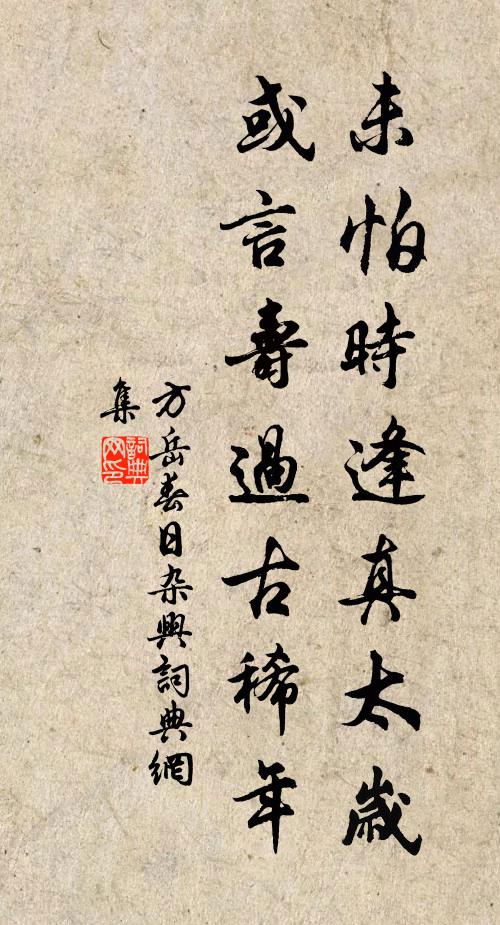 未怕時逢真太歲
或言壽過古稀年
方岳春日杂興詞典網
集
詞典
网印